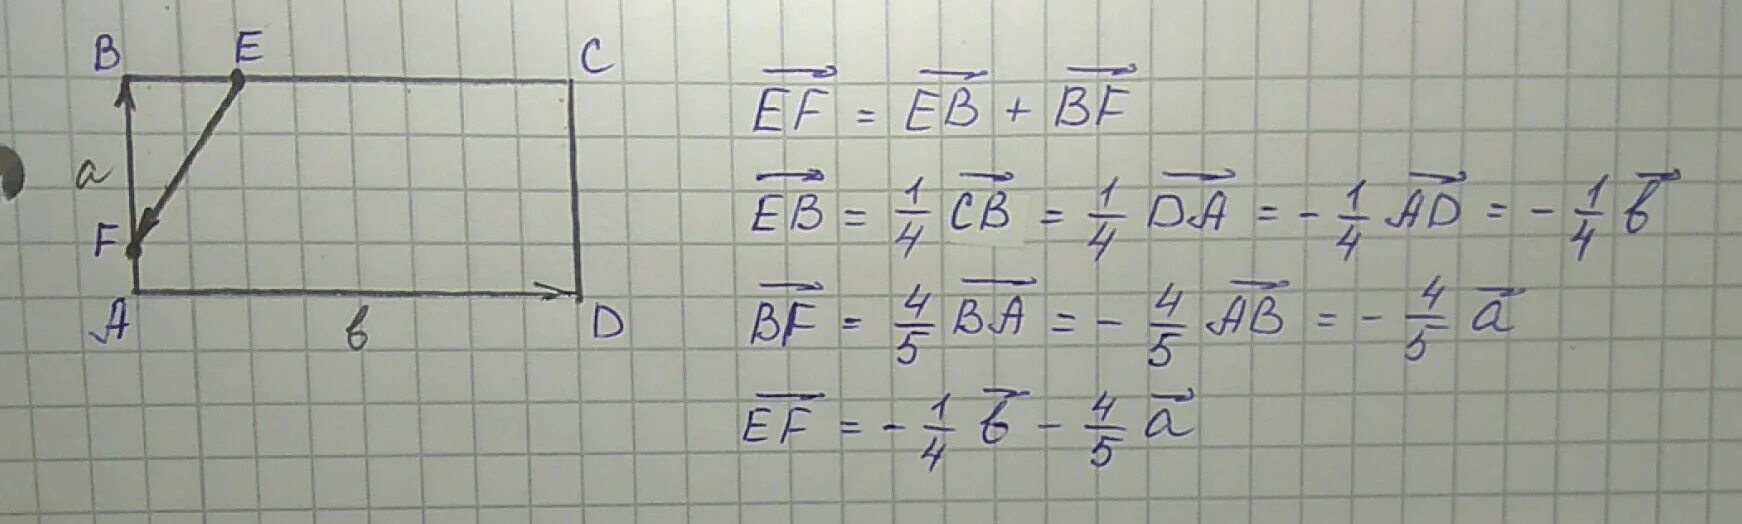 B E C
a
F
A в D
EF = EB + BF
EB = 1/4 CB = 1/4 DA = - 1/4 AD = - 1/4 в
BF = 4/5 BA = - 4/5 AB = - 4/5 a
EF = - 1/4 в - 4/5 a